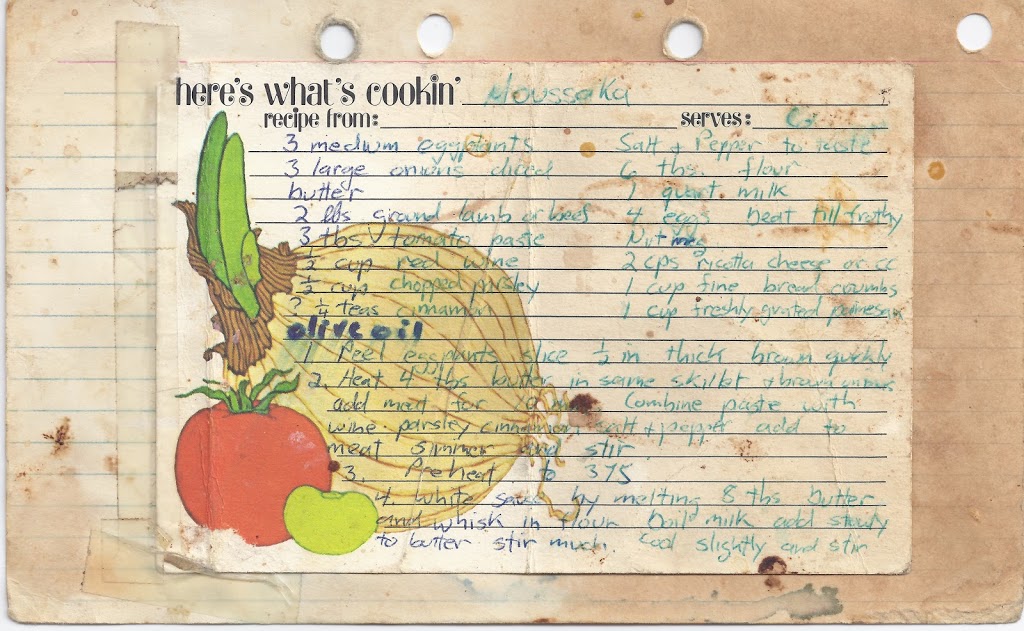 here's what's cookin' Moussaka
recipe from: serves:
3 medium eggplants Salt + Pepper to taste
3 large onions diced 6 tbs. flour
butter 1 quart milk
2 lbs ground lamb or beef 4 eggs beat till frothy
3 tbs tomato paste Nutmeg
½ cup red wine 2 cps ricotta cheese or cc
½ cup chopped parsley 1 cup fine bread crumbs
? ¼ teas cinamon 1 cup freshly grated parmesan
olive oil
1 Peel eggplants slice ½ in thick brown quickly
2. Heat 4 tbs butter in same skillet + brown onions
add meat for Combine paste with
wine parsley cinnamon salt + pepper add to
meat simmer and stir
3. Preheat to 375
4 white sauce by melting 8 tbs butter
and whisk in flour boil milk add slowly
to butter stir much. Cool slightly and stir